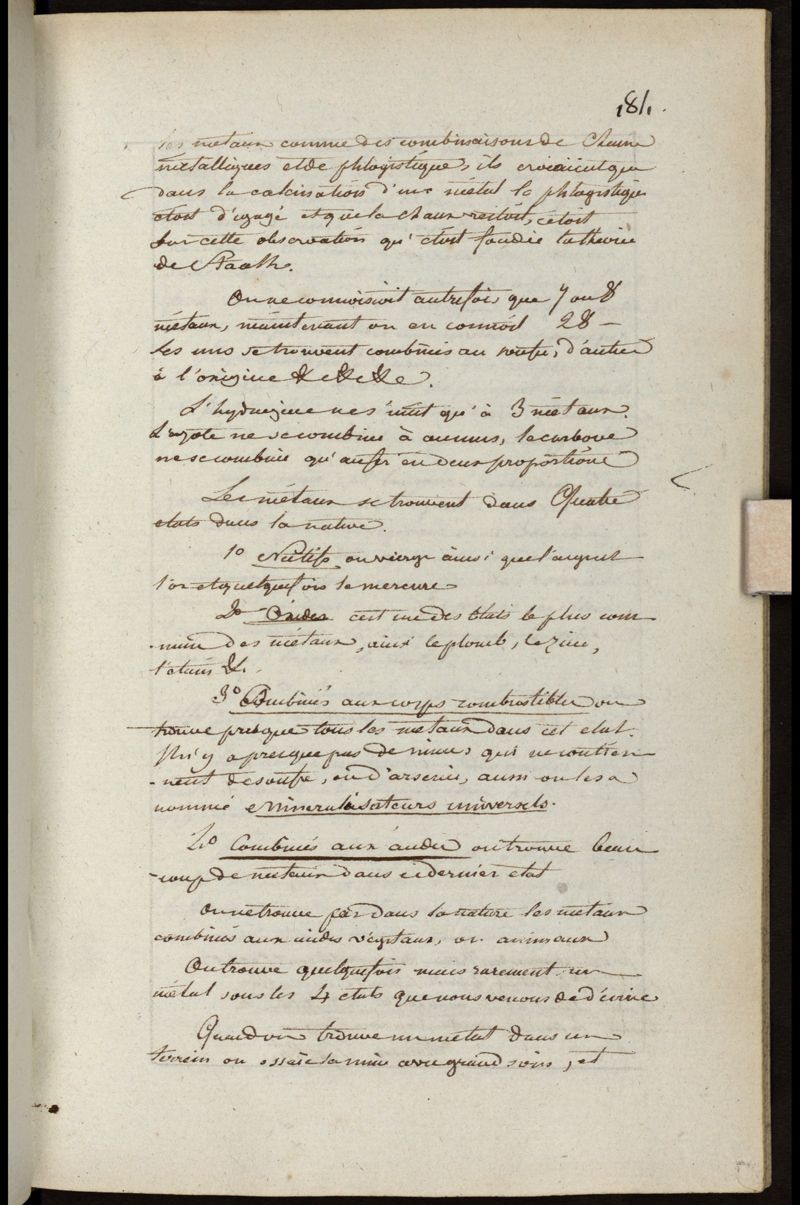 181.
les métaux comme des combinaisons de Chaux
métalliques et de phlogistique, ils croioient que
dans la calcination d'un métal le phlogistique
étoit dégagé et que la chaux restoit, c'étoit
sur cette observation qu'étoit fondée la théorie
de Staalh.
On ne connoissoit autrefois que 7 ou 8
métaux, maintenant on en connoit 28 —
les uns se trouvent combinés au soufre, d'autres
à l'origine &c &c &c.
L'hydrogène ne s'unit qu'à 3 métaux.
L'azote ne se combine à aucuns, le carbone
ne se combine qu'au fer en deux proportions
Les métaux se trouvent dans Quatre
etats dans la nature.
1o Natifs ou vierge ainsi que l'argent
l'or et quelquefois le mercure
2o Oxides c'est un des Etats le plus com-
-mun des métaux, ainsi le plomb, le zinc,
l'etain &c.
3o Combinés aux corps combustibles on
trouve presque tous les métaux dans cet etat.
Il n'y a presque pas de mines qui ne contien-
-nent de soufre, ou d'arsenic, aussi on les a
nommé Minéralisateurs universels.
4o Combinés aux acides on trouve beau-
-coup de métaux dans ce dernier etat
On ne trouve pas dans la nature les métaux
combinés aux acides végétaux, ou animaux
On trouve quelquefois mais rarement un
métal sous les 4 états que nous venons de décrire
Quand on trouve un métal dans un
terrein on essaie la mine avec grand soins, et